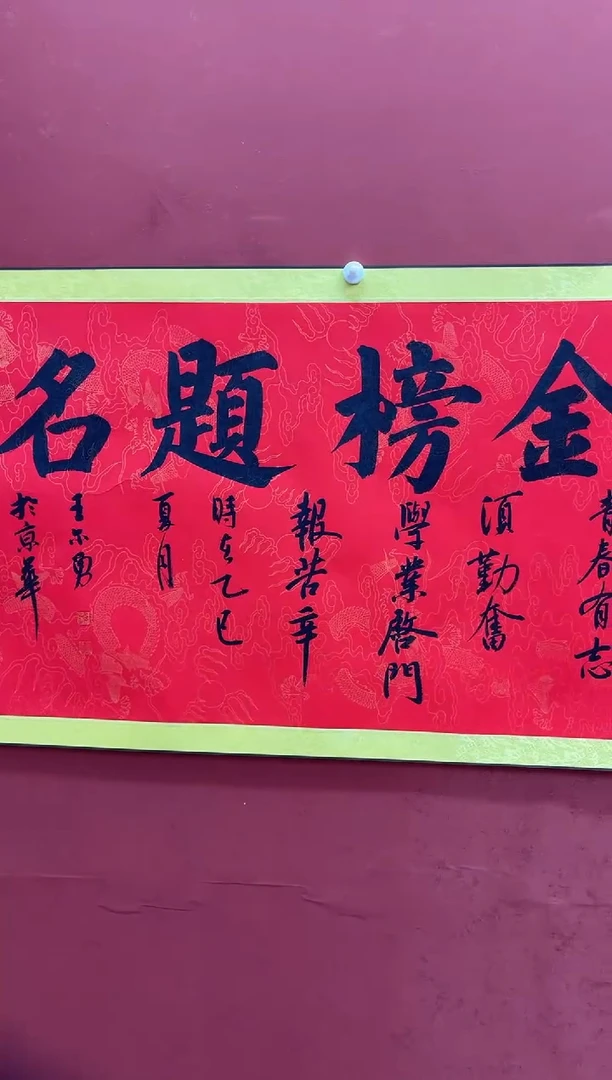 金榜題名
青春有志
須勤奮
學業啓門
報苦辛
時在乙巳
夏月
王勇
於京華